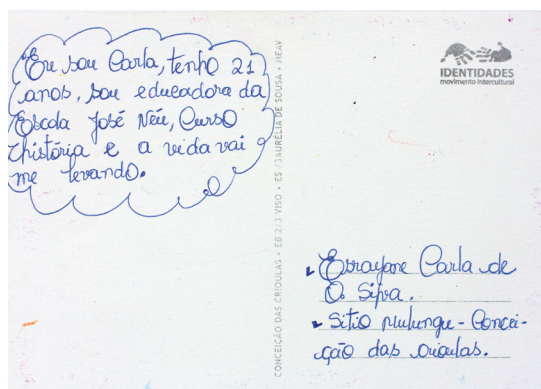 Eu sou Carla, tenho 21
anos, sou educadora da
Escola José Néu, Curso
história e a vida vai
me levando.
CONCEIÇÃO DAS CRIOULAS • EB 2/3 VISO • ES /3AURÉLIA DE SOUSA • MEAV
IDENTIDADES
movimento intercultural
Carla de
O. Silva.
Sitio mulungu - Concei-
ção das crioulas.